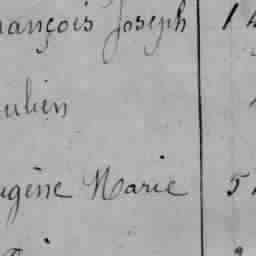 rançois Joseph 1
ulien
ugène Marie 5